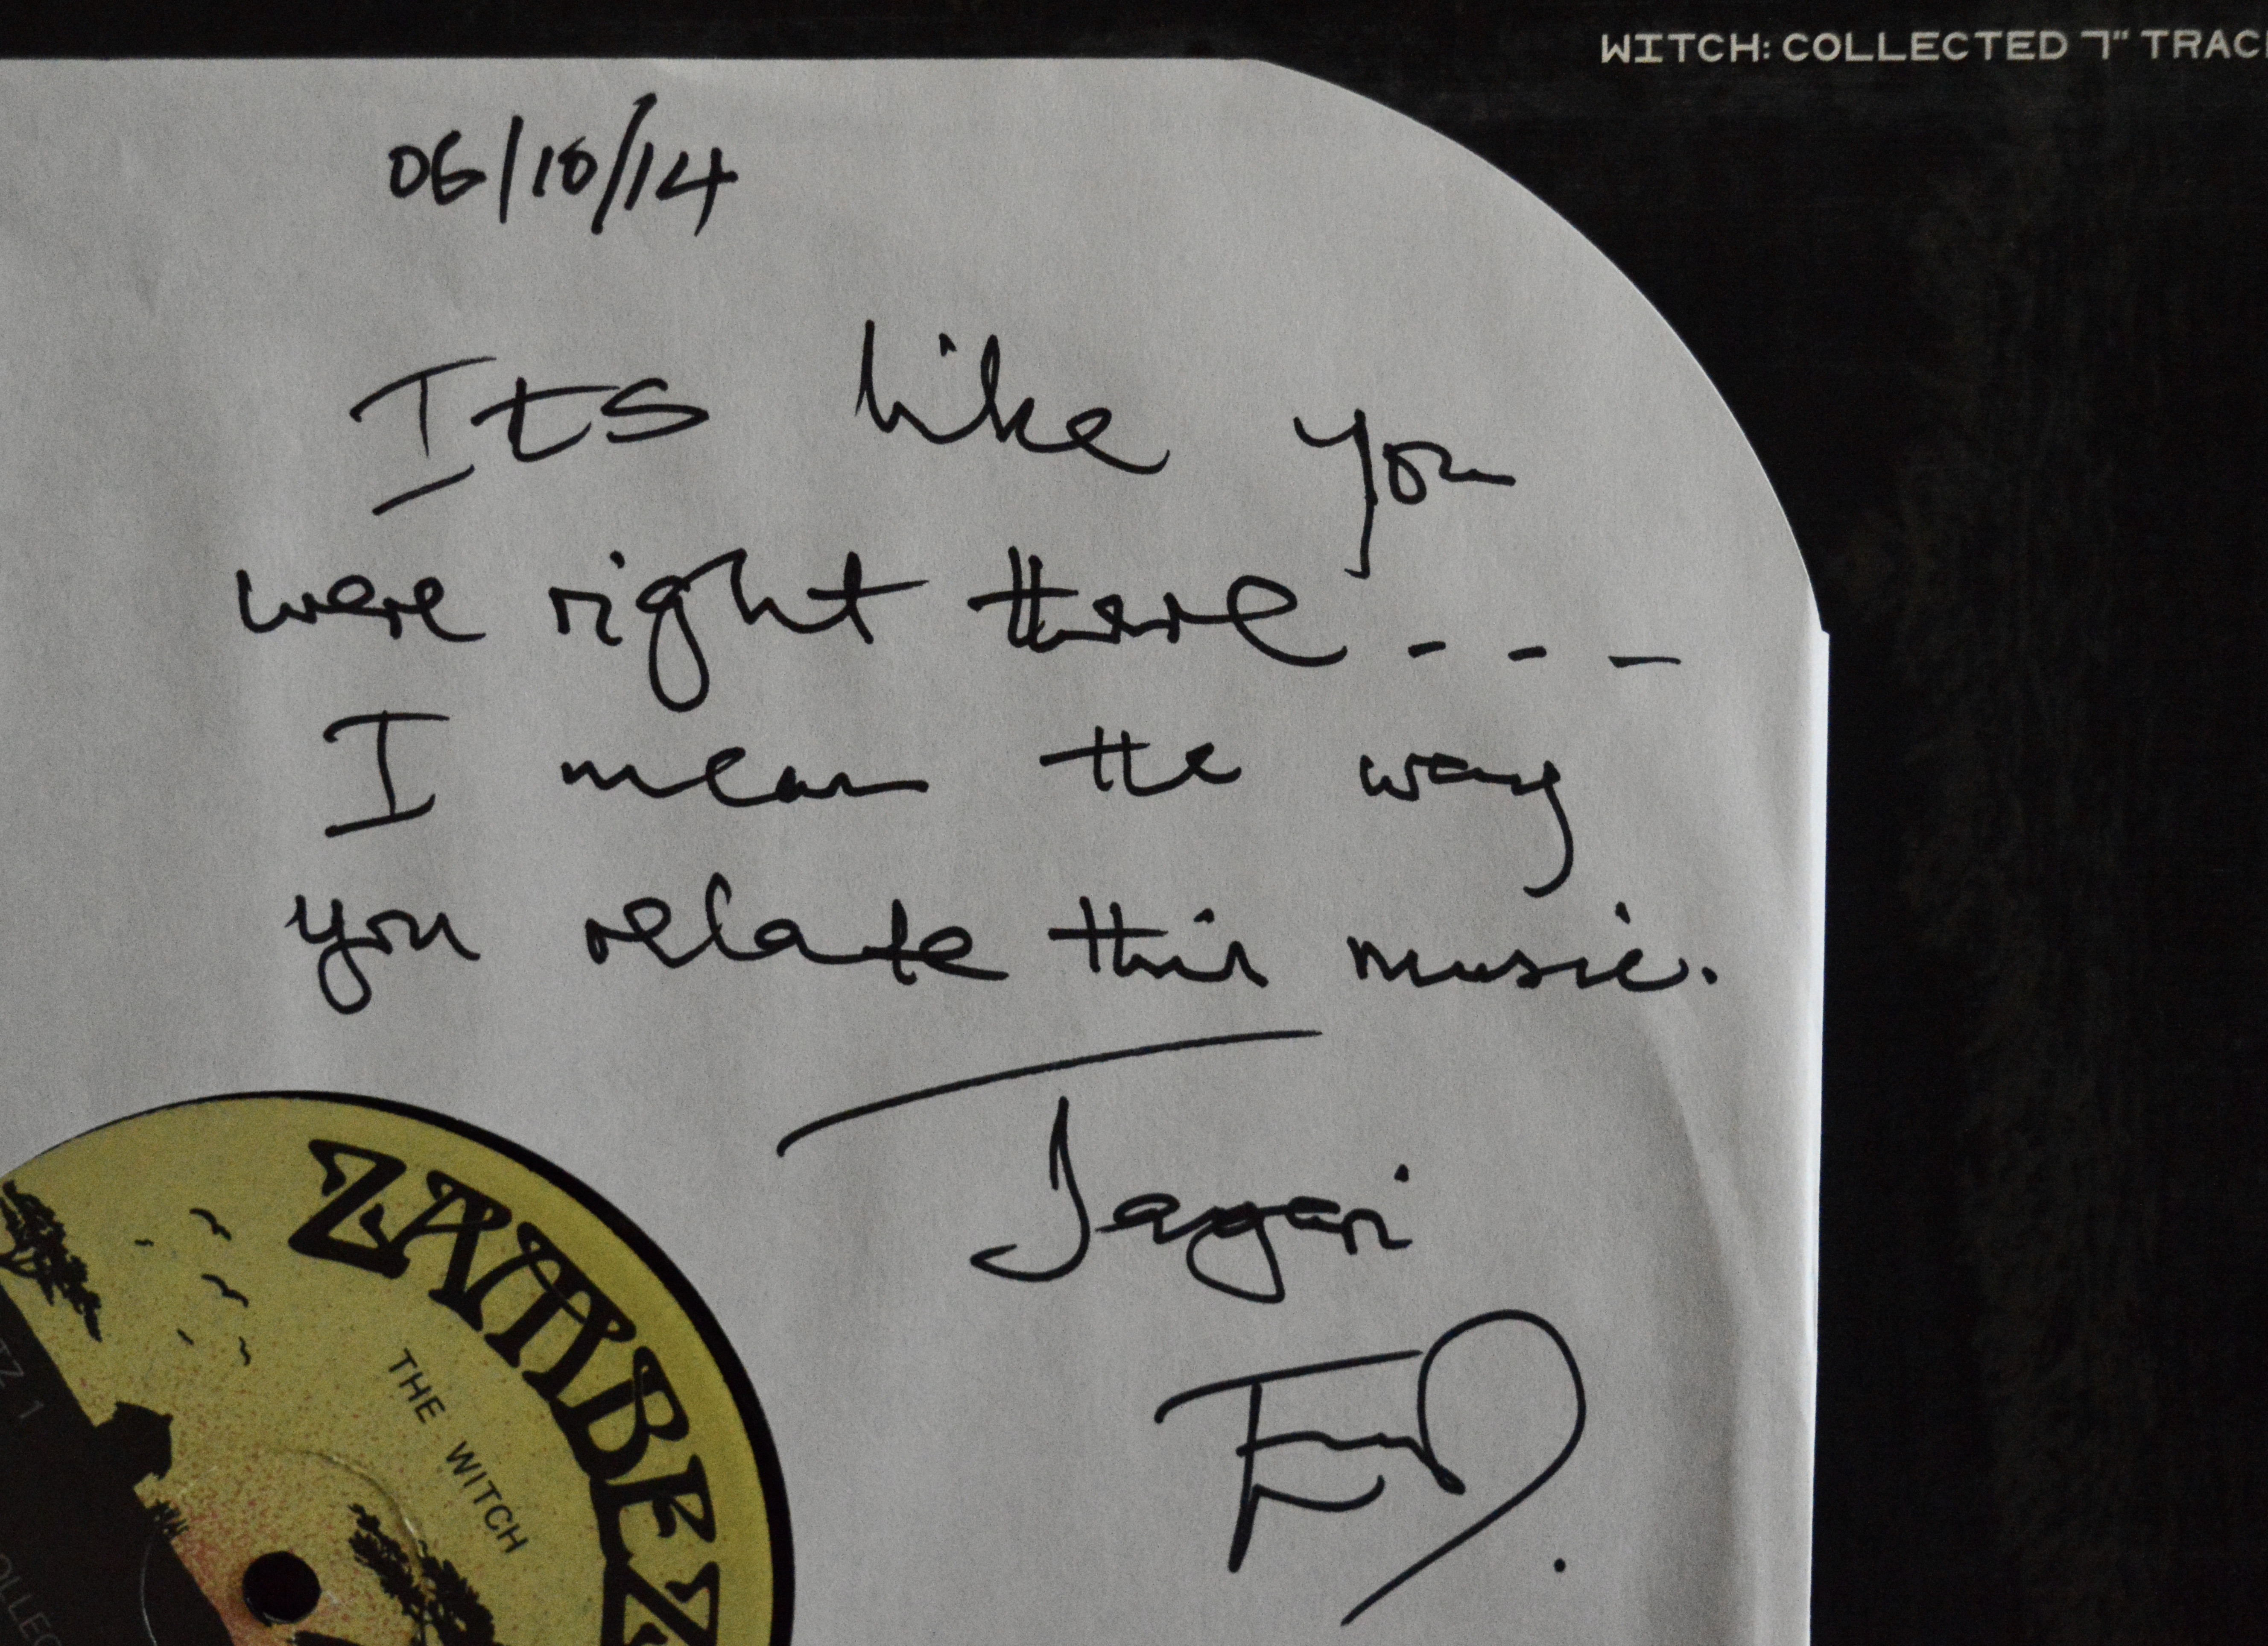 WITCH: COLLECTED 7" TRAC
06/10/14
Its like you
were right there - - -
I mean the way
you relate this music.
Jagari
ZAMBEZ
THE WITCH
TZ 1
OLLEC